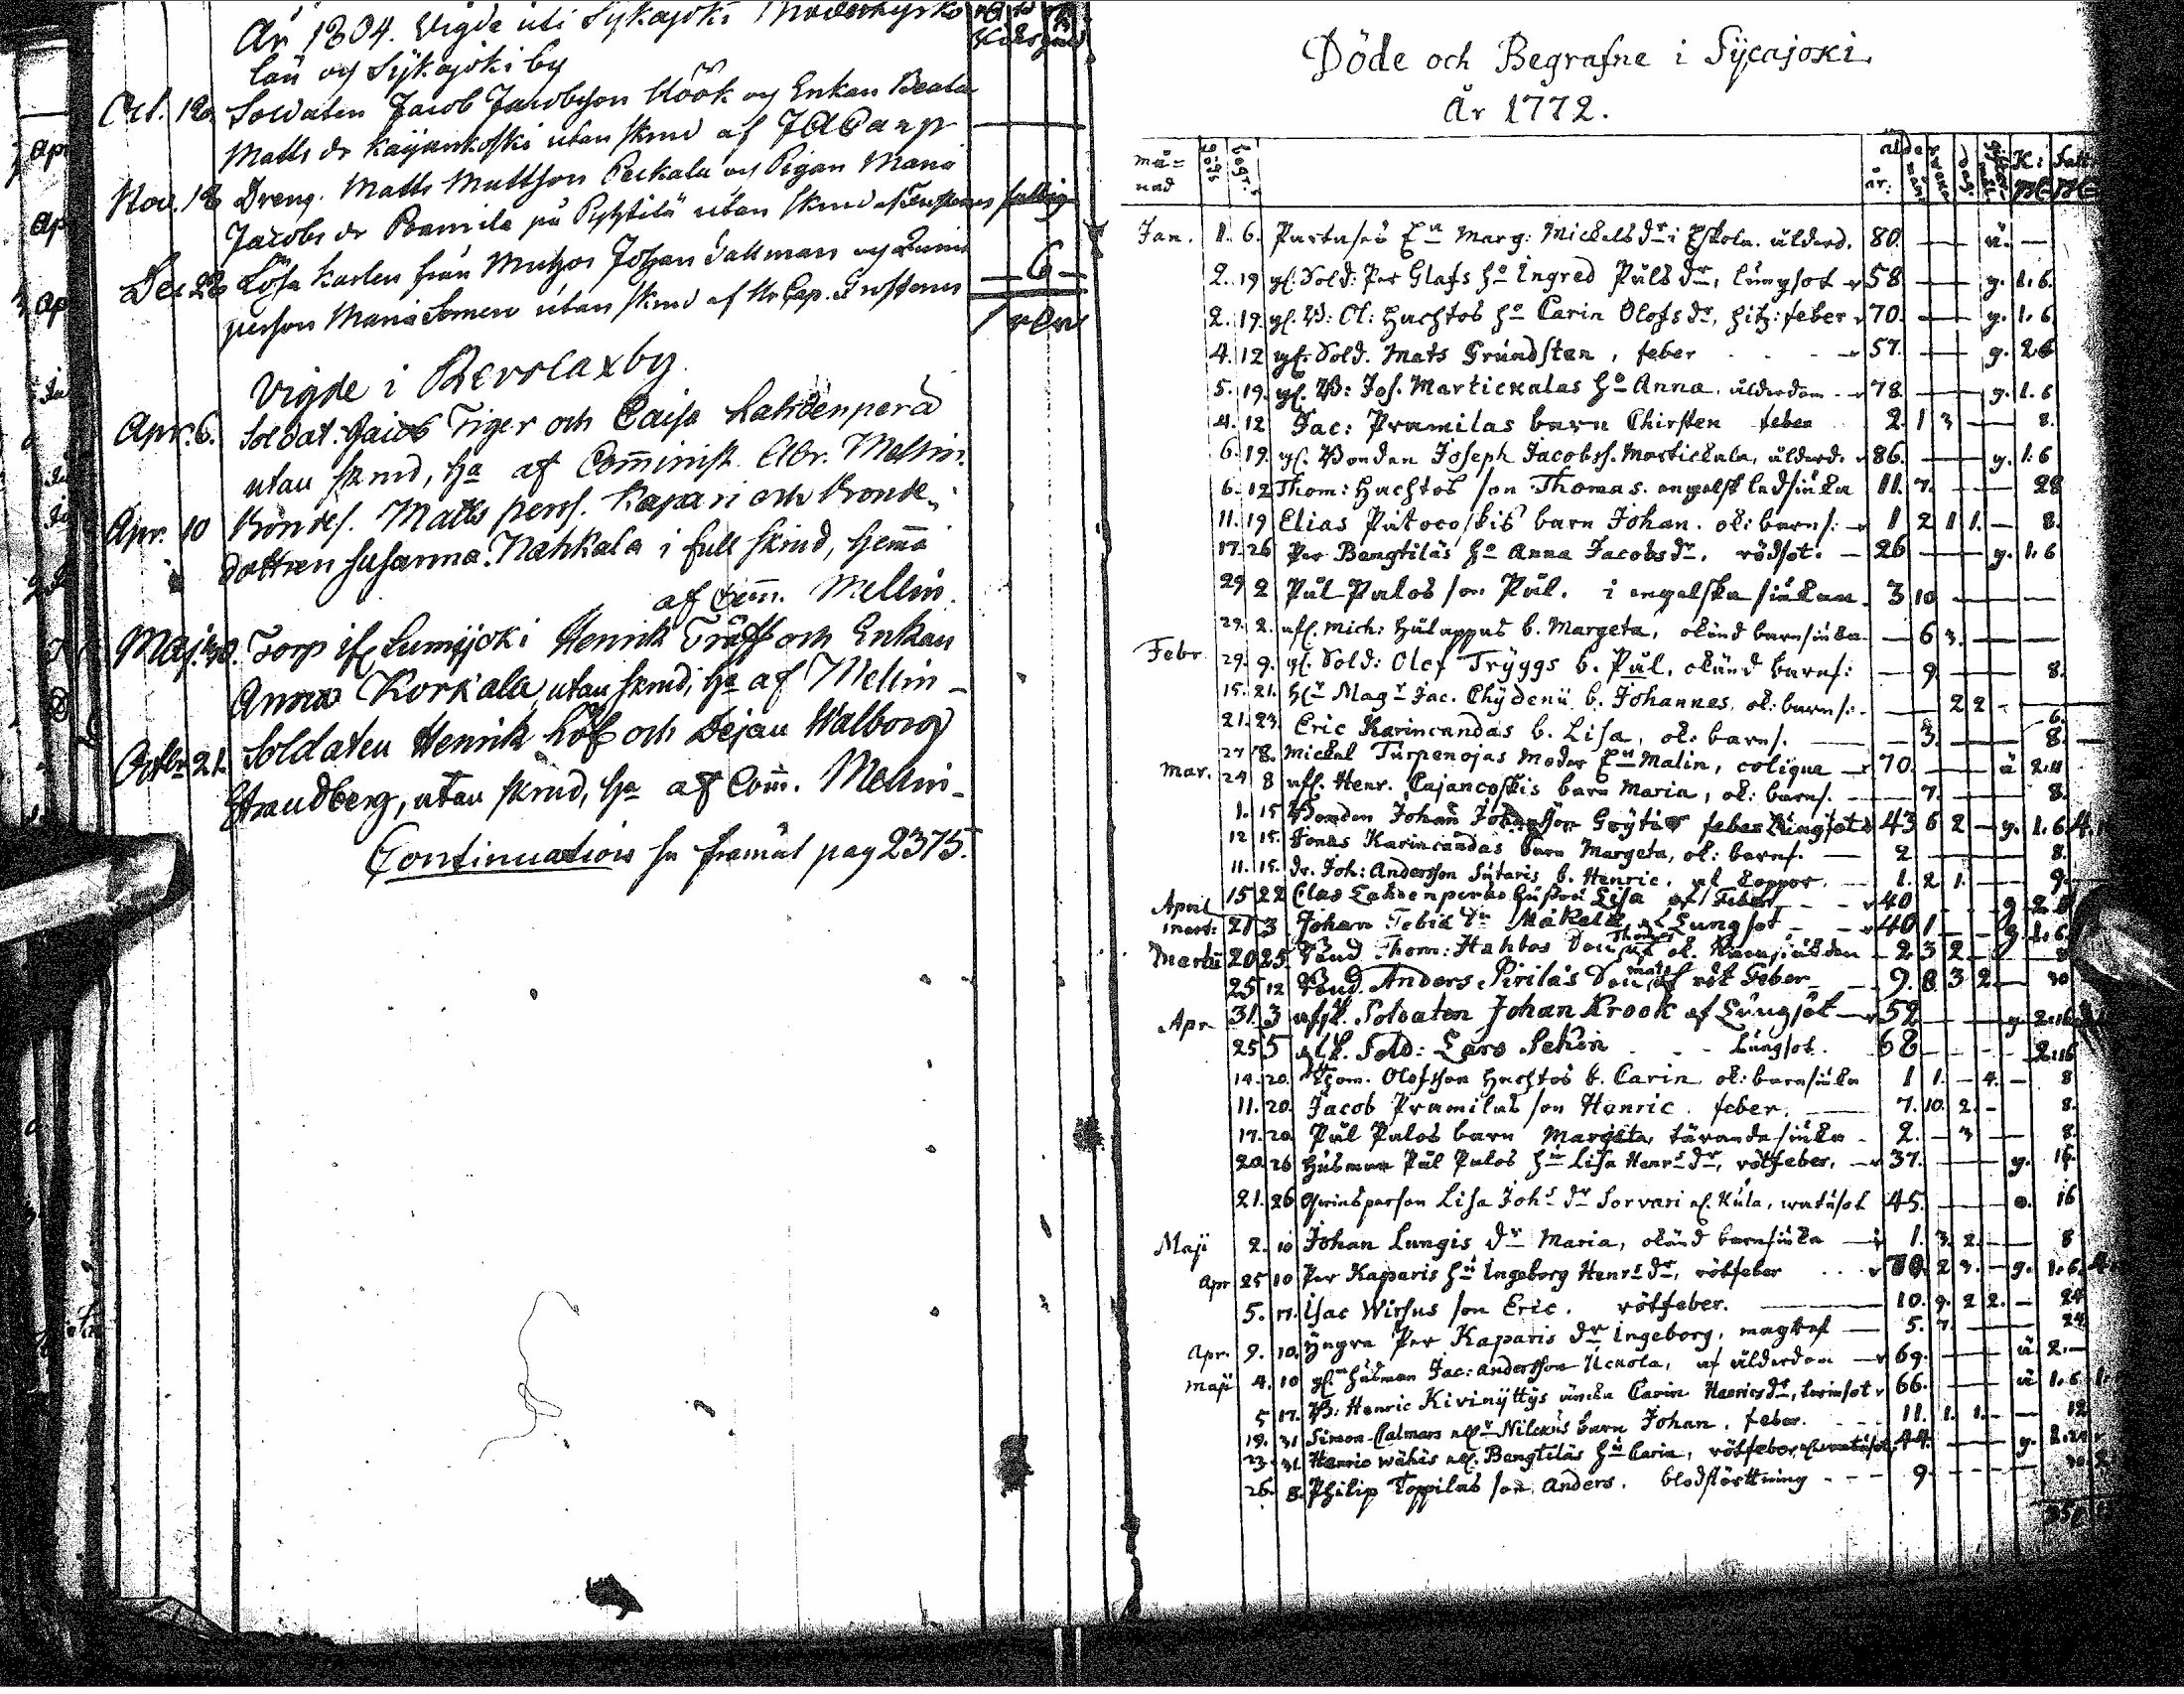 År 1804. Vigde uti Sykajoki Moderkyrko
län och Sykajoki by
Oct. 12 Soldaten Jacob Jacobsson Höök och Enkan Beata
Matts dr Kajankoski utan skrud af
Nov. 18 Dreng. Matts Mattsson Peckala och Pigan Maria
Jacobs dr Pramila på Ryhtilä utan skrud af
Dec. 28 Lösa karlen från Muhos Johan Dallman och Quins
person Maria utan skrud af Hr Cap. 6
Vigde i Revolax by
Apr. 6. Soldat. Jacob Tiger och Caisa Lahdenperä
utan skrud, ha af Comminist. Abr. Mellin.
Apr. 10 Bondes. Matts Pers. Kapari och Bonde-
dottren Susanna Nahkala i full skrud, hemma
af Com. Mellin.
Maj. 30. Torp. ifr. Lumijoki Henrik Träff och Enkan
Anna Korkala, utan skrud, ha af Mellin-
Octbr 21. Soldaten Henrik Löf och Dejan Walborg
Strandberg, utan skrud, ha af Com. Mellin-
Continuation se framåt pag 2375.
Döde och Begrafne i Sÿcajoki
År 1772.
må=
nad
begr.
ålder
år:
K:
Jan. 1. 6. En Marg: Michels dr i Eskola. ålderd. 80. ä.
2. 19 gl. Sold: Per Glafs ho Ingred Påls dr, lungsot 58 g. 1. 6.
2. 19. gl. B: Ol: Huchtos ho Carin Olofs dr, hitz: feber 70. g. 1. 6
4. 12 gl. Sold. Mats Grundsten, feber 57. g. 2.6
5. 19. gl. B: Jos. Martickalas ho Anna. ålderdom 78 g. 1. 6
4. 12 Jac: Pramilas barn Chirsten feber 2. 1 3 8.
6. 19. gl. Bonden Joseph Jacobss. Martickala, ålderd. 86. g. 1. 6
6. 12 Thom: Huchtos son Thomas. engelsk ledsiuka 11. 7. 28
11. 19 Elias Patocoskis barn Johan. ok: barns: 1 2 1 1. 8.
17. 26 Per Bengtiläs ho Anna Jacobs dr. rödsot. 26 g. 1. 6
29 2 Pål Palos son Pål. i engelska siukan. 3 10
29. 2. afl. Mich: Hulappas b. Margeta, okänd barnsiuka 6 3.
Febr. 29. 9. gl. Sold: Olof Trÿggs b. Pål, okänd barns: 9. 8.
15. 21. Hr Magr Jac. Chÿdenii b. Johannes, ok: barns: 2 2 6.
21. 23. Eric Karincandas b. Lisa, ok: barns. 3. 8.
27 8. Mickel Turpenojas moder En Malin, colique 70. ä
Mar. 24 8 afl. Henr. Cajancoskis barn Maria, ok: barns. 7. 8.
1. 15 Bonden Johan Johansson feber 43 6 2 g. 1. 6
12 15. Jonas Karincandas barn Margeta, ok: barns. 2 8.
11. 15. dr. Joh: Andersson Sutaris b. Henric, af koppor. 1. 2 1. 9.
April 15 22 Clas Lahdenperäs hustru Lisa af Feber 40 g
21 3 Johan Tebia dn Mäkelä af Lungsot 40 1 g 1. 6.
Martii 20 25 Bond Thom: Hahtos Son Thomas ok. Barnsiukdom 2 3 2 8
25 12 Bond. Anders Pirilas Son Mats af röt Feber 9. 8 3 2 30
Apr 31. 3 afsk. Soldaten Johan Krook af Lungsot 52 g
25 5 afsk. Sold: Lars Lungsot. 68 2.16
14. 20. Thom. Olofsson Huchtos b. Carin ok: barnsiuka 1 1. 4. 8
11. 20. Jacob Pramilas son Henric. feber. 7. 10. 2. 8.
17. 20 Pål Palos barn Margeta, tärande siuka 2. 3 8.
20 26 Husman Pål Palos hu Lisa Henrs dr, rötfeber. 37. g. 16.
21. 26 Qvinsperson Lisa Johs dr Sorvari 45. 16
Maji 2. 10 Johan Lungis dr Maria, okänd barnsiuka 1. 3. 2. 8
Apr 25 10 Per Kaparis hu Ingeborg Henrs dr, rötfeber 2 3. g. 1. 6.
5. 17. Isac Wirsus son Eric. rötfeber. 10. 9. 2 2. 24
Apr. 9. 10. Yngre Per Kaparis dr Ingeborg, magref 5. 7. 24
Maji 4. 10 gl. husman Jac: Andersson Uckola, af ålderdom 69. ä 2.
5 17. B: Henric Kivinÿttÿs äncka Carin Henrics dr, 66. ä 1. 6
19. 31 Simon Calmars barn Johan. feber. 11. 1. 1. 12
23. 31. Henric Wähäs Bengtiläs hu Carin, rötfeber, 44. g.
26. 8. Philip Toppilas son Anders. blodstörttning 9.